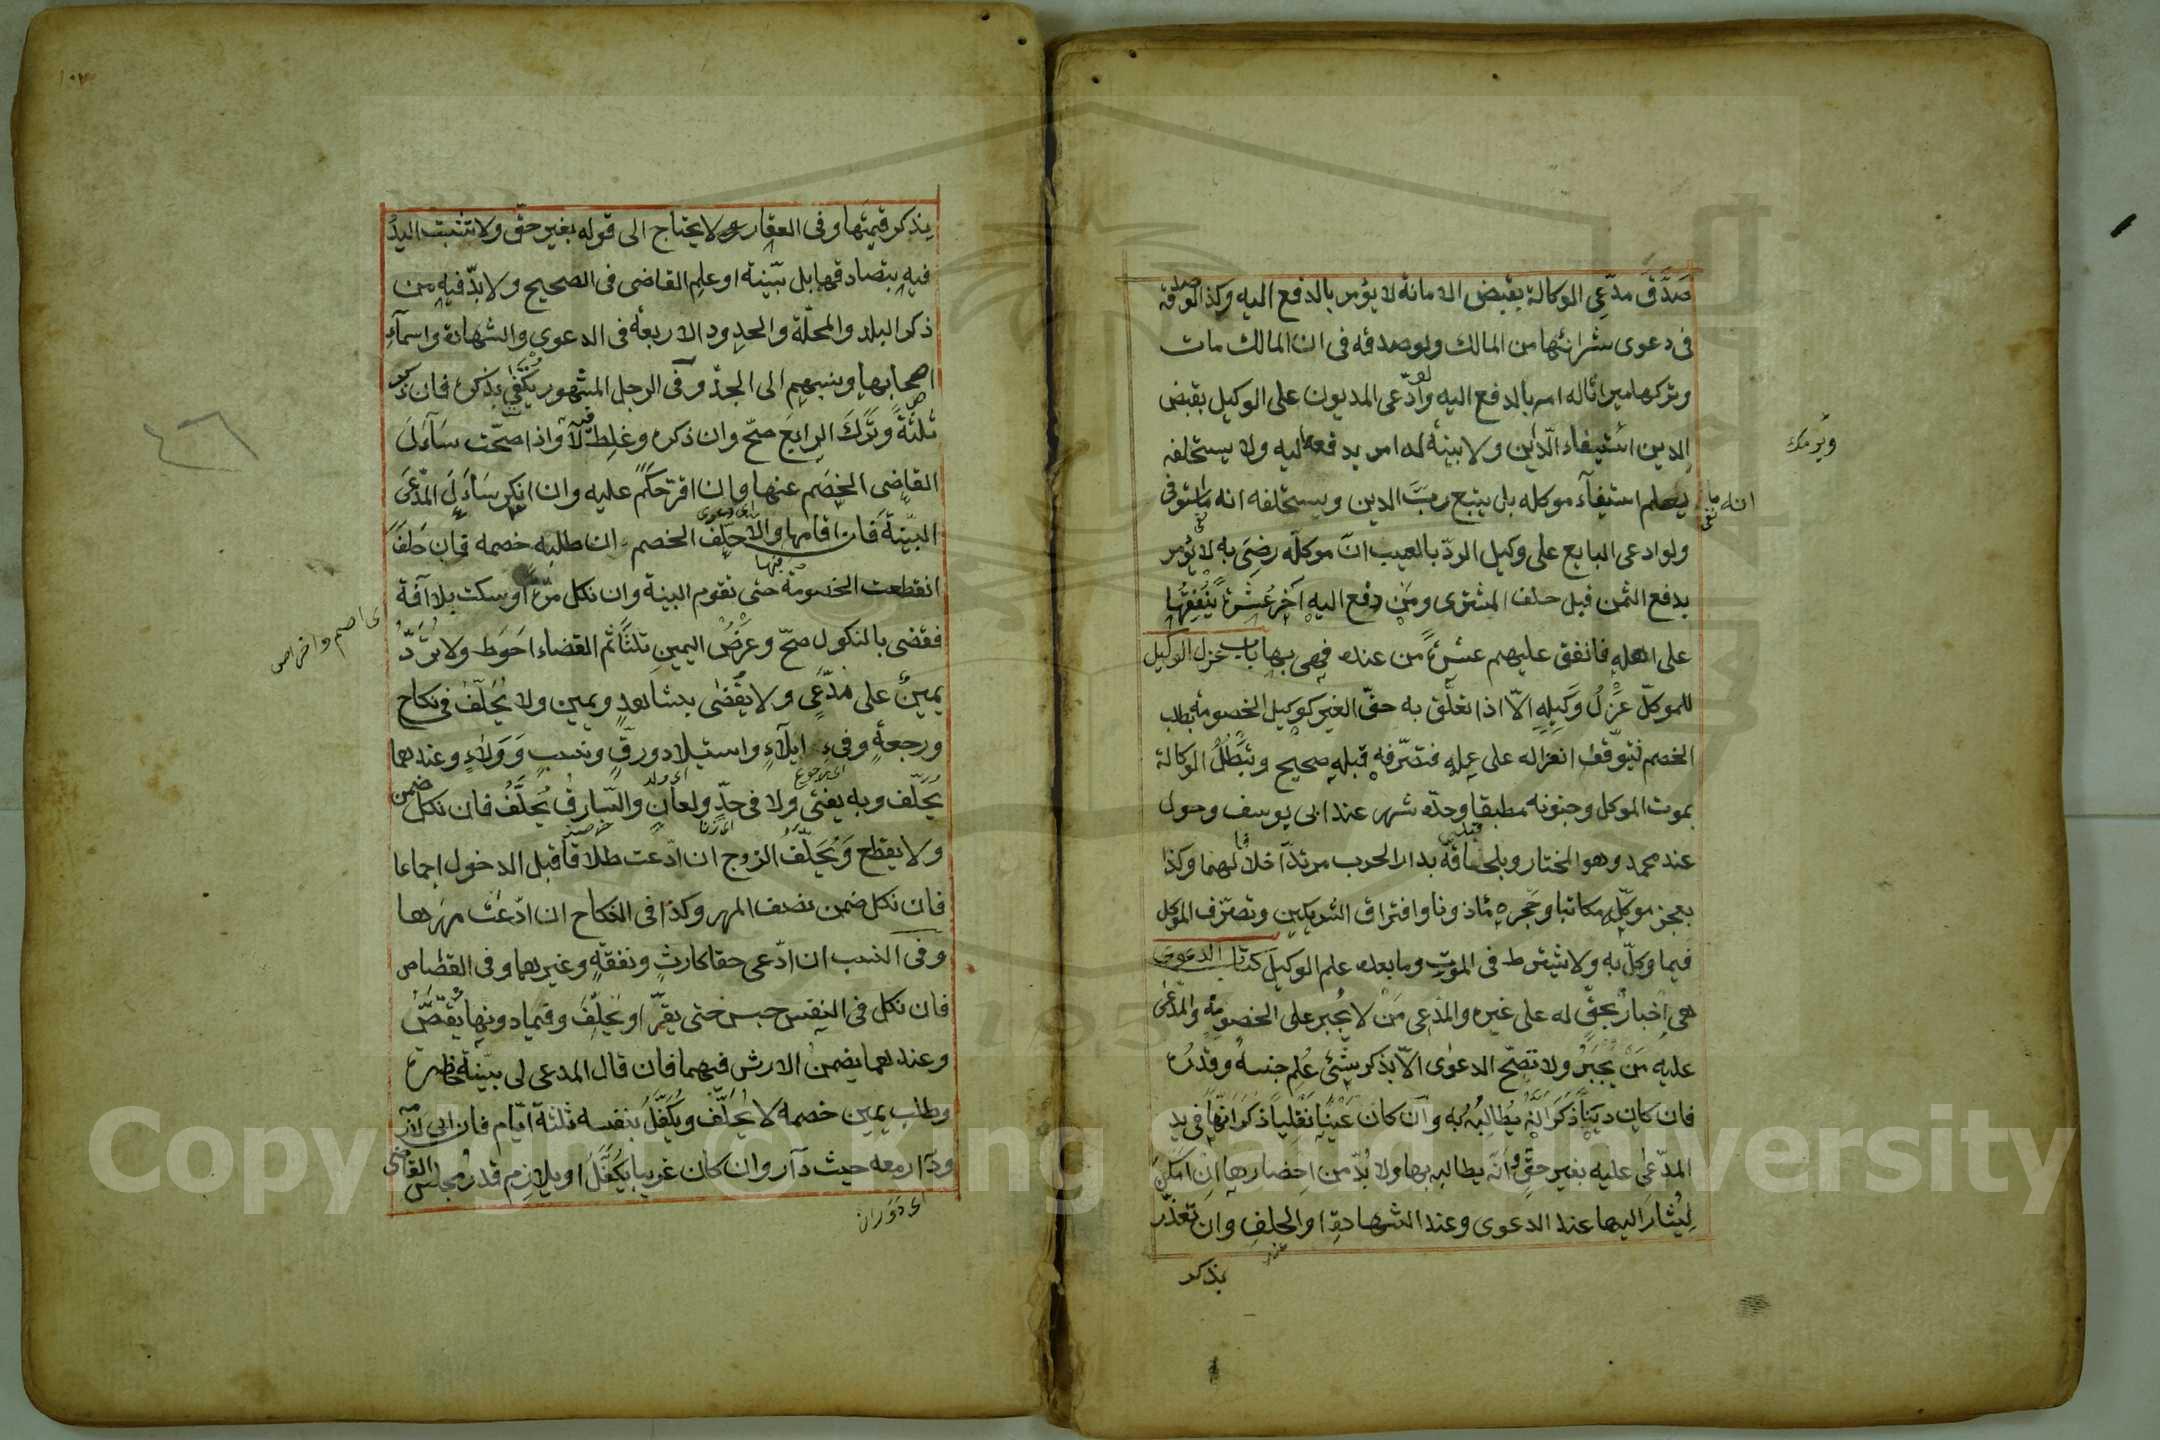 صَدَّقَ مدّعى الوكالة بقبض الامانة لا يؤمر بالدفع اليه وكذا لو صدقه
فى دعوى شرائها من المالك ولو صدقه فى ان المالك مات
وتركها ميراثا له امر بالدفع اليه ولو ادّعى المديون على الوكيل بقبض
الدين استيفاء الدّاين ولا بينة له امر بدفعه اليه ولا يستحلفه
ويرمك
انه ما يعلم استيفآء موكله بل يتبع ربَّ الدين ويستحلفه انه ما استوفى
ولو ادعى البايع على وكيل الردّ بالعيب انّ موكلّه رضِىَ به لا يؤمر
بدفع الثمن قبل حلف المشترى ومَنْ دفع اليه آخَر عشرةً يُنْفِقُهَا
على اهله فانفق عليهم عشرةً من عنده فهى بها باب عزل الوكيل
للموكلّ عزْلُ وَكِيلِهِ الاّ اذا تعلّق به حقّ الغير كوكيل الخصومة بطلب
الخصم فيتوقّف انعزاله على علمه فتصرّفه قبله صحيح وتَبْطُلُ الوكالة
بموت الموكل وجنونه مطبقا وحدّه شهر عند ابى يوسف وحول
عند محمد وهو المختار وبلحاقه بدار الحرب مرتدّا خلافا لهما وكذا
بعجز موكلِّه مكاتبا وحَجْره مأذونا وافتراق الشريكين وتصرّف الموكل
فيما وكلّ به ولا يشترط فى الموت وما بعده علم الوكيل كتاب الدعوى
هى اِخبارٌ بحقٍّ له على غيره والمدّعى مَنْ لا يُجبر على الخصومة والمدّعى
عليه مَنْ يُجْبَرُ ولا تصحّ الدعوى الاّ بذكر شئ عُلِم جنسهُ وقدْرُه
فان كان دَيْناً ذَكَرَ اَنَّهُ يُطالِبُهُ به وان كان عَيْناً نقْلياً ذَكَرَ انّها فى يد
المدّعى عليه بغير حقٍّ وانّه يطالبه بها ولا بُدَّ من احضارها ان امكن
لِيُشارَ اليها عند الدعوى وعند الشهادة او الحلفِ وان تعذّر
عند
يذكر
يذكر قيمتَها وفى العقار لا يحتاج الى قوله بغير حقّ ولا تثبت اليدُ
فيه بتصادقهما بل ببّينة او علم القاضى فى الصحيح ولا بدّ فيه من
ذكر البلد والمحلّة والحدود الاربعة فى الدعوى والشهادة واسمآءِ
اصحابها ونسبهم الى الجدّ وفى الرجل المشهور يكتفى بذكره فان ذكر
ثلثةً وتَرَكَ الرابع صحّ وان ذكره وغلِط فيه لا واذا صحّت سَاَلَ
القاضى الخصم عنها فان اقرّ حكم عليه وان انكر سَاَلَ المدّعىَ
البيّنةَ فان اقامها والاّ حلّف الخصم ان طلبه خصمه فان حلَفَ
انقطعت الخصومة حتى تقوم البينة وان نكل مرّةً او سكت بلا آفة
اى اصم واخرس
فقضى بالنكول صحّ وعَرْضُ اليمينِ ثلثاً ثم القضاء احَوَط ولا تُرَدُّ
يمينٌ على مدّعى ولا يقضى بشاهدٍ ويمين ولا يُحلَّف فى نكاح
ورجعةٍ وفىءِ ايلآءٍ واستيلاد ورقٍّ ونسبٍ وَوَلاءٍ وعندهما
يُحلّف وبه يفتى ولا فى حدّ ولعانٍ والسّارقُ يُحلَّفُ فان نكل ضمن
ولا يقطع وَيُحَلَّف الزوج ان ادّعت طلاقا قبل الدخول اجماعا
فان نكل ضمن نصف المهر وكذا فى النكاح ان ادّعَت مهرها
وفى النسب ان ادّعى حقا كارثٍ ونفقةٍ وغيرهما وفى القصاص
فان نكل فى النفس حبس حتى يقرّ او يحلّف وفيما دونها يُقتصُّ
وعندهما يضمن الارش فيهما فان قال المدعى لى بيّنة حاضرة
وطلب يمين خصمه لا يُحَلَّف ويُكَفَّلُ بنفسه ثلثةَ ايّام فان ابى لازمَ
ودَارَ معه حيث دَار وان كان غريبا يُكَفَّلُ او يلازم قدر مجلس القاضى
اى دَوَران
٤٢٦
Copyright © King Saud University